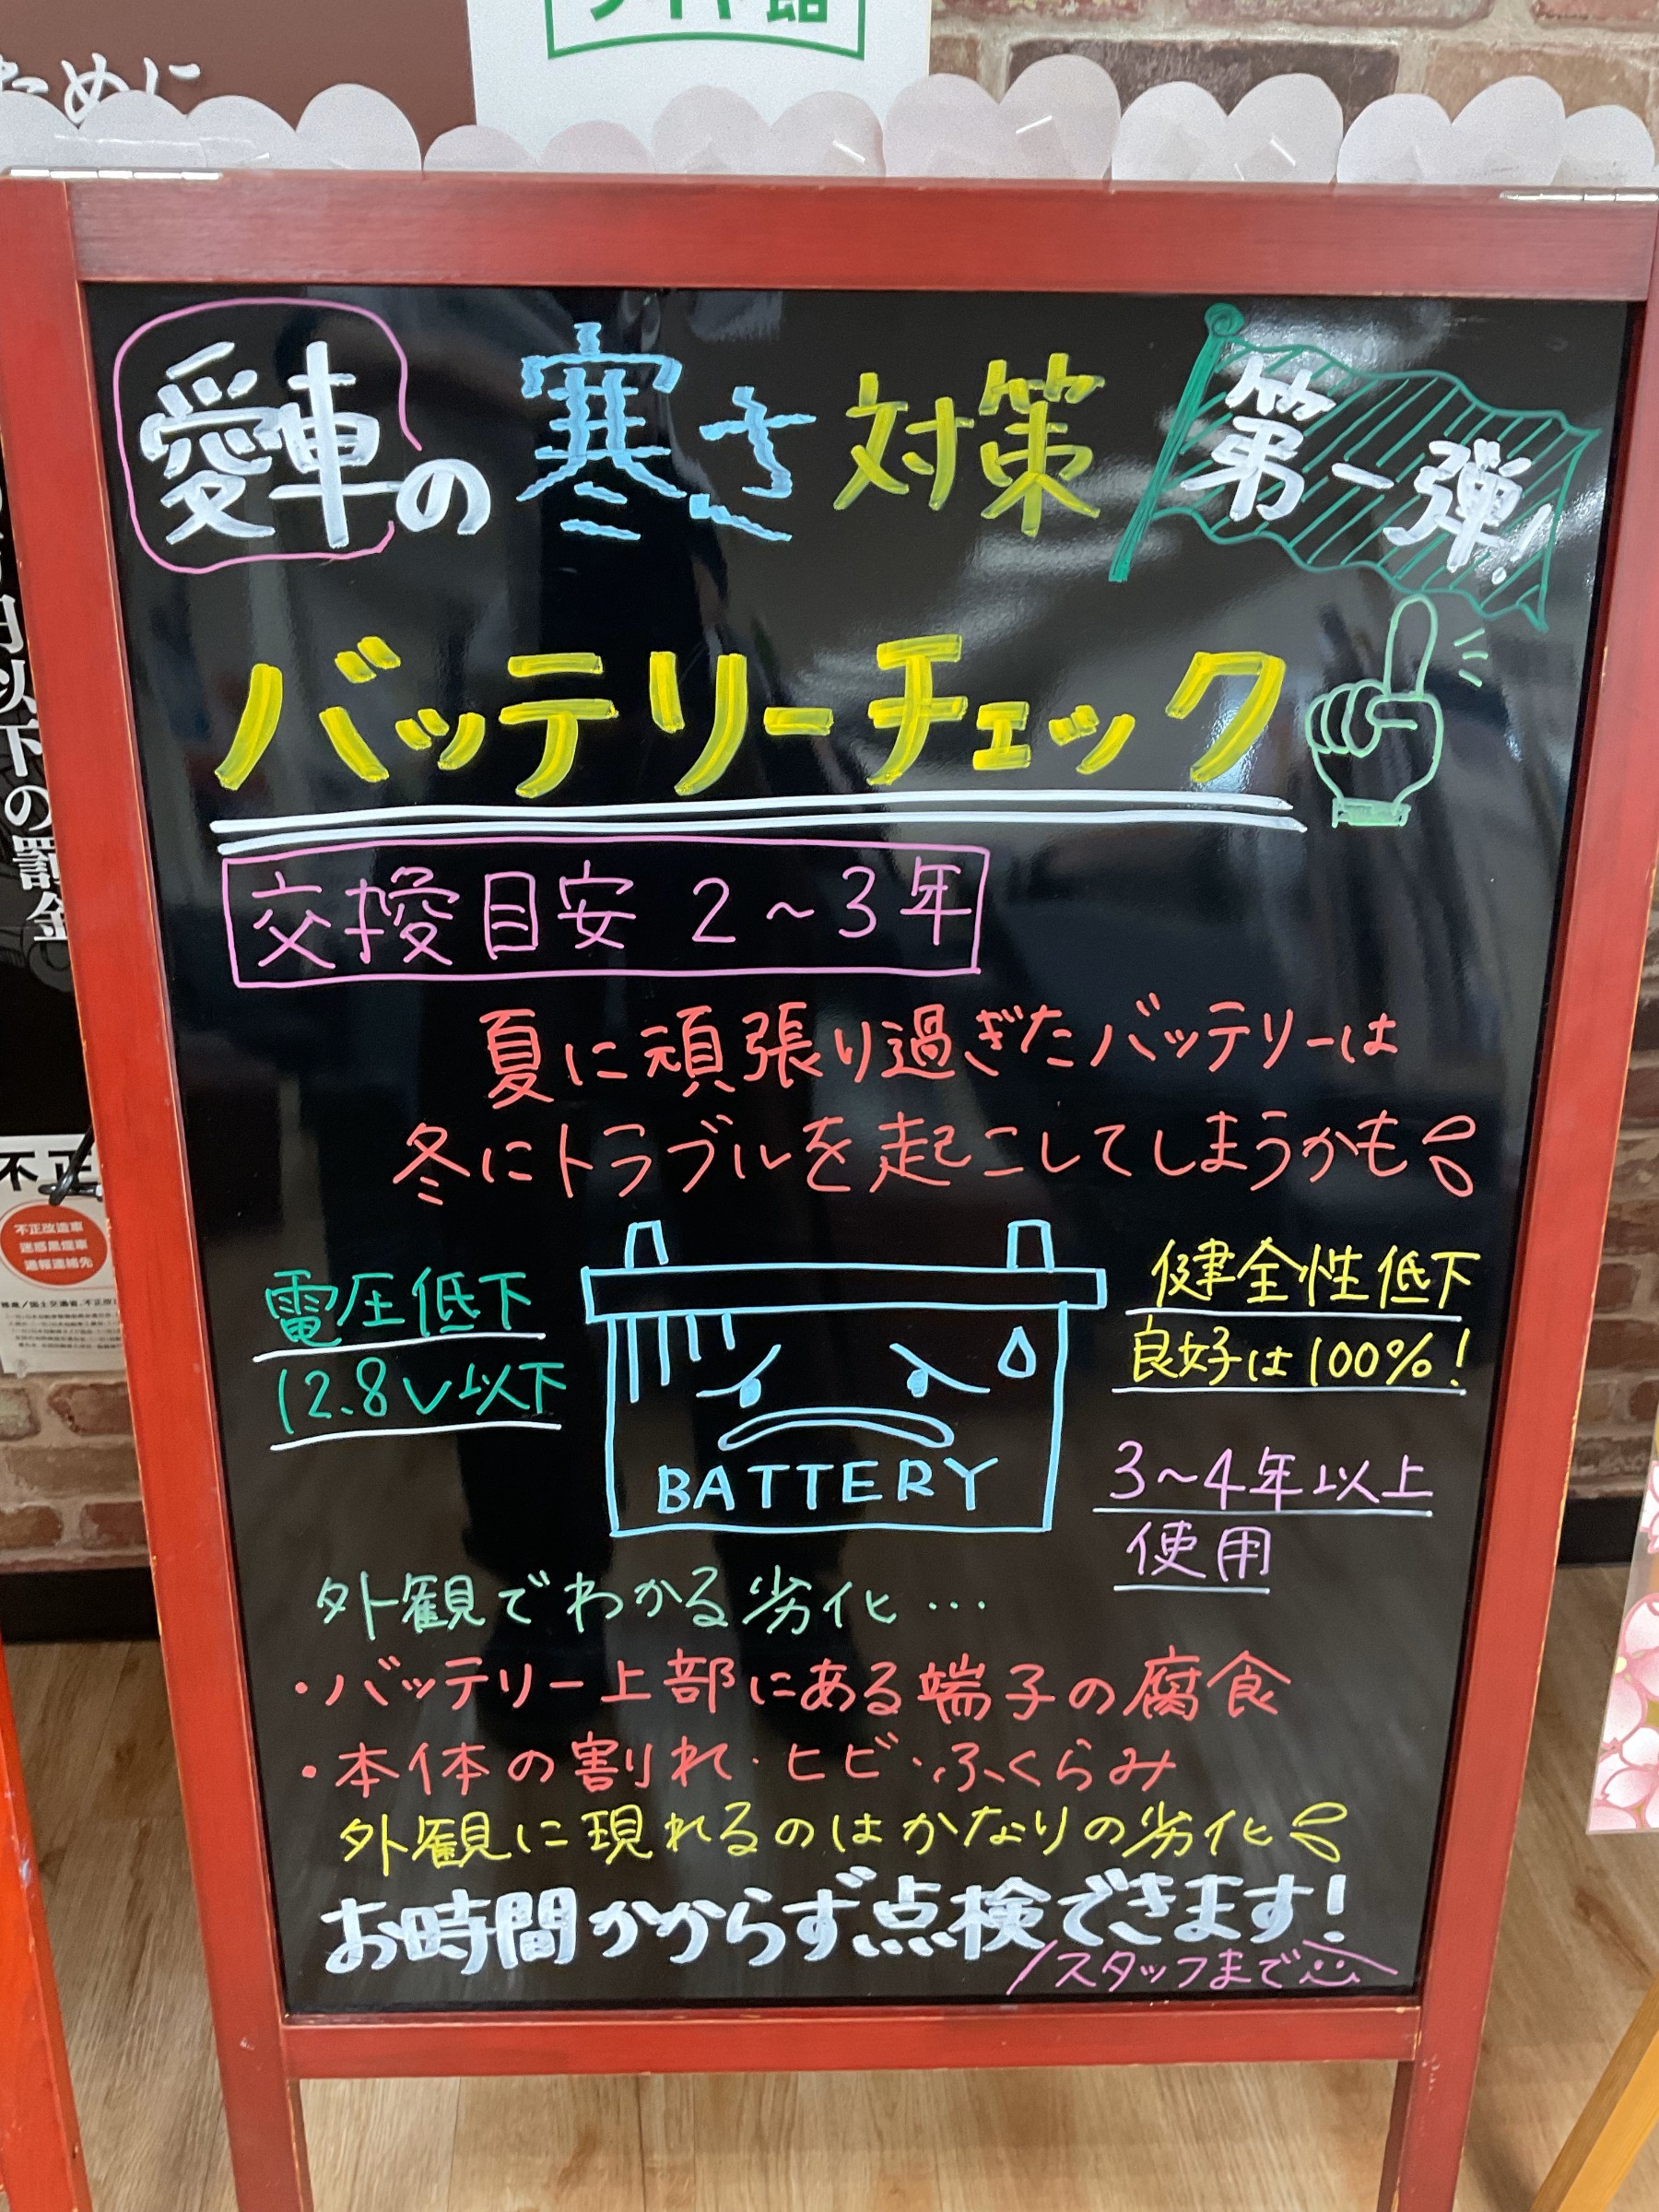 ために
タイヤ館
愛車の寒さ対策 第一弾!
バッテリーチェック
交換目安 2～3年
夏に頑張り過ぎたバッテリーは
冬にトラブルを起こしてしまうかも
電圧低下
12.8V以下
健全性低下
良好は100%!
BATTERY
3～4年以上
使用
外観でわかる劣化…
・バッテリー上部にある端子の腐食
・本体の割れ・ヒビ・ふくらみ
外観に現れるのはかなりの劣化
お時間かからず点検できます!
/スタッフまで
円以下の罰金
不正
不正改造車
迷惑黒煙車
通報連絡先